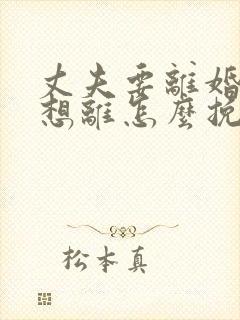 丈夫要離婚
想離怎麼挽
松本真